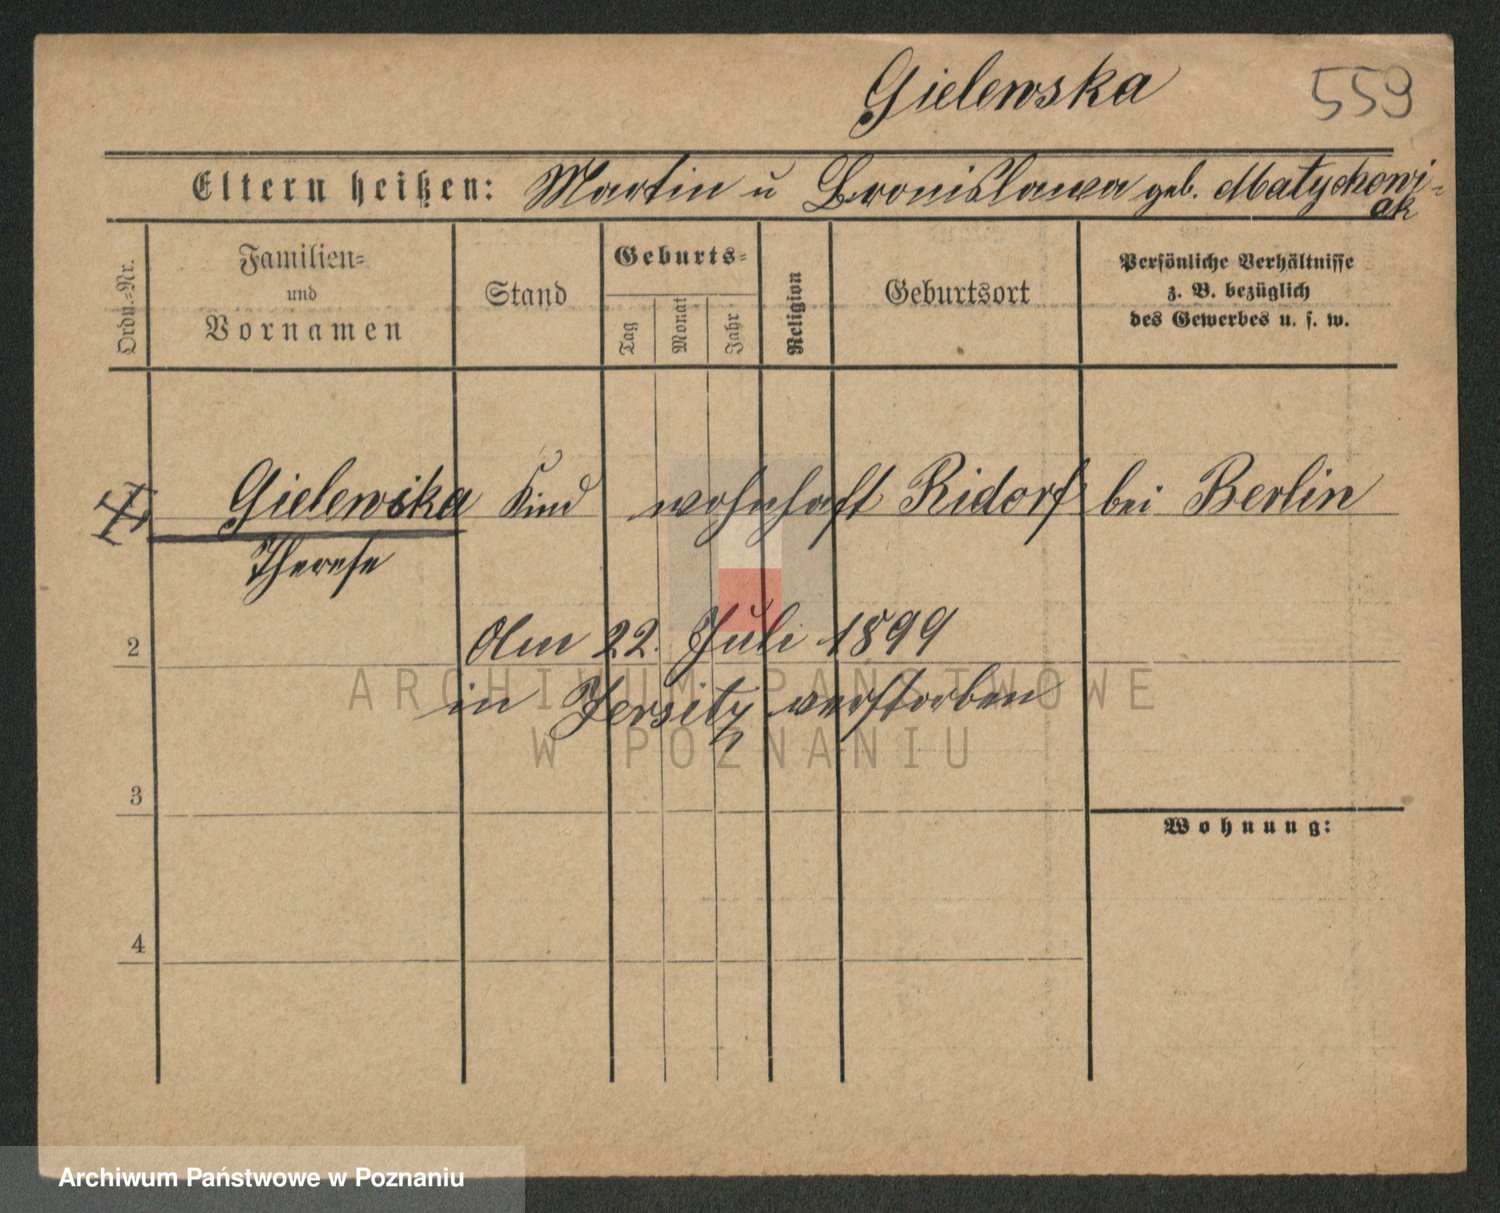 Gielewska 559
Eltern heißen: Martin u Bronislawa geb. Matychowi-
ak
Ordn.-Nr.
Familien-
und
Vornamen
Stand
Geburts-
Tag
Monat
Jahr
Religion
Geburtsort
Persönliche Verhältnisse
z. B. bezüglich
des Gewerbes u. s. w.
Gielewska Kind wohnhaft Ridorf bei Berlin
Therese
2
Am 22. Juli 1899
in Jersitz verstorben
ARCHIWUM PAŃSTWOWE
W POZNANIU
3
Wohnung:
4
Archiwum Państwowe w Poznaniu